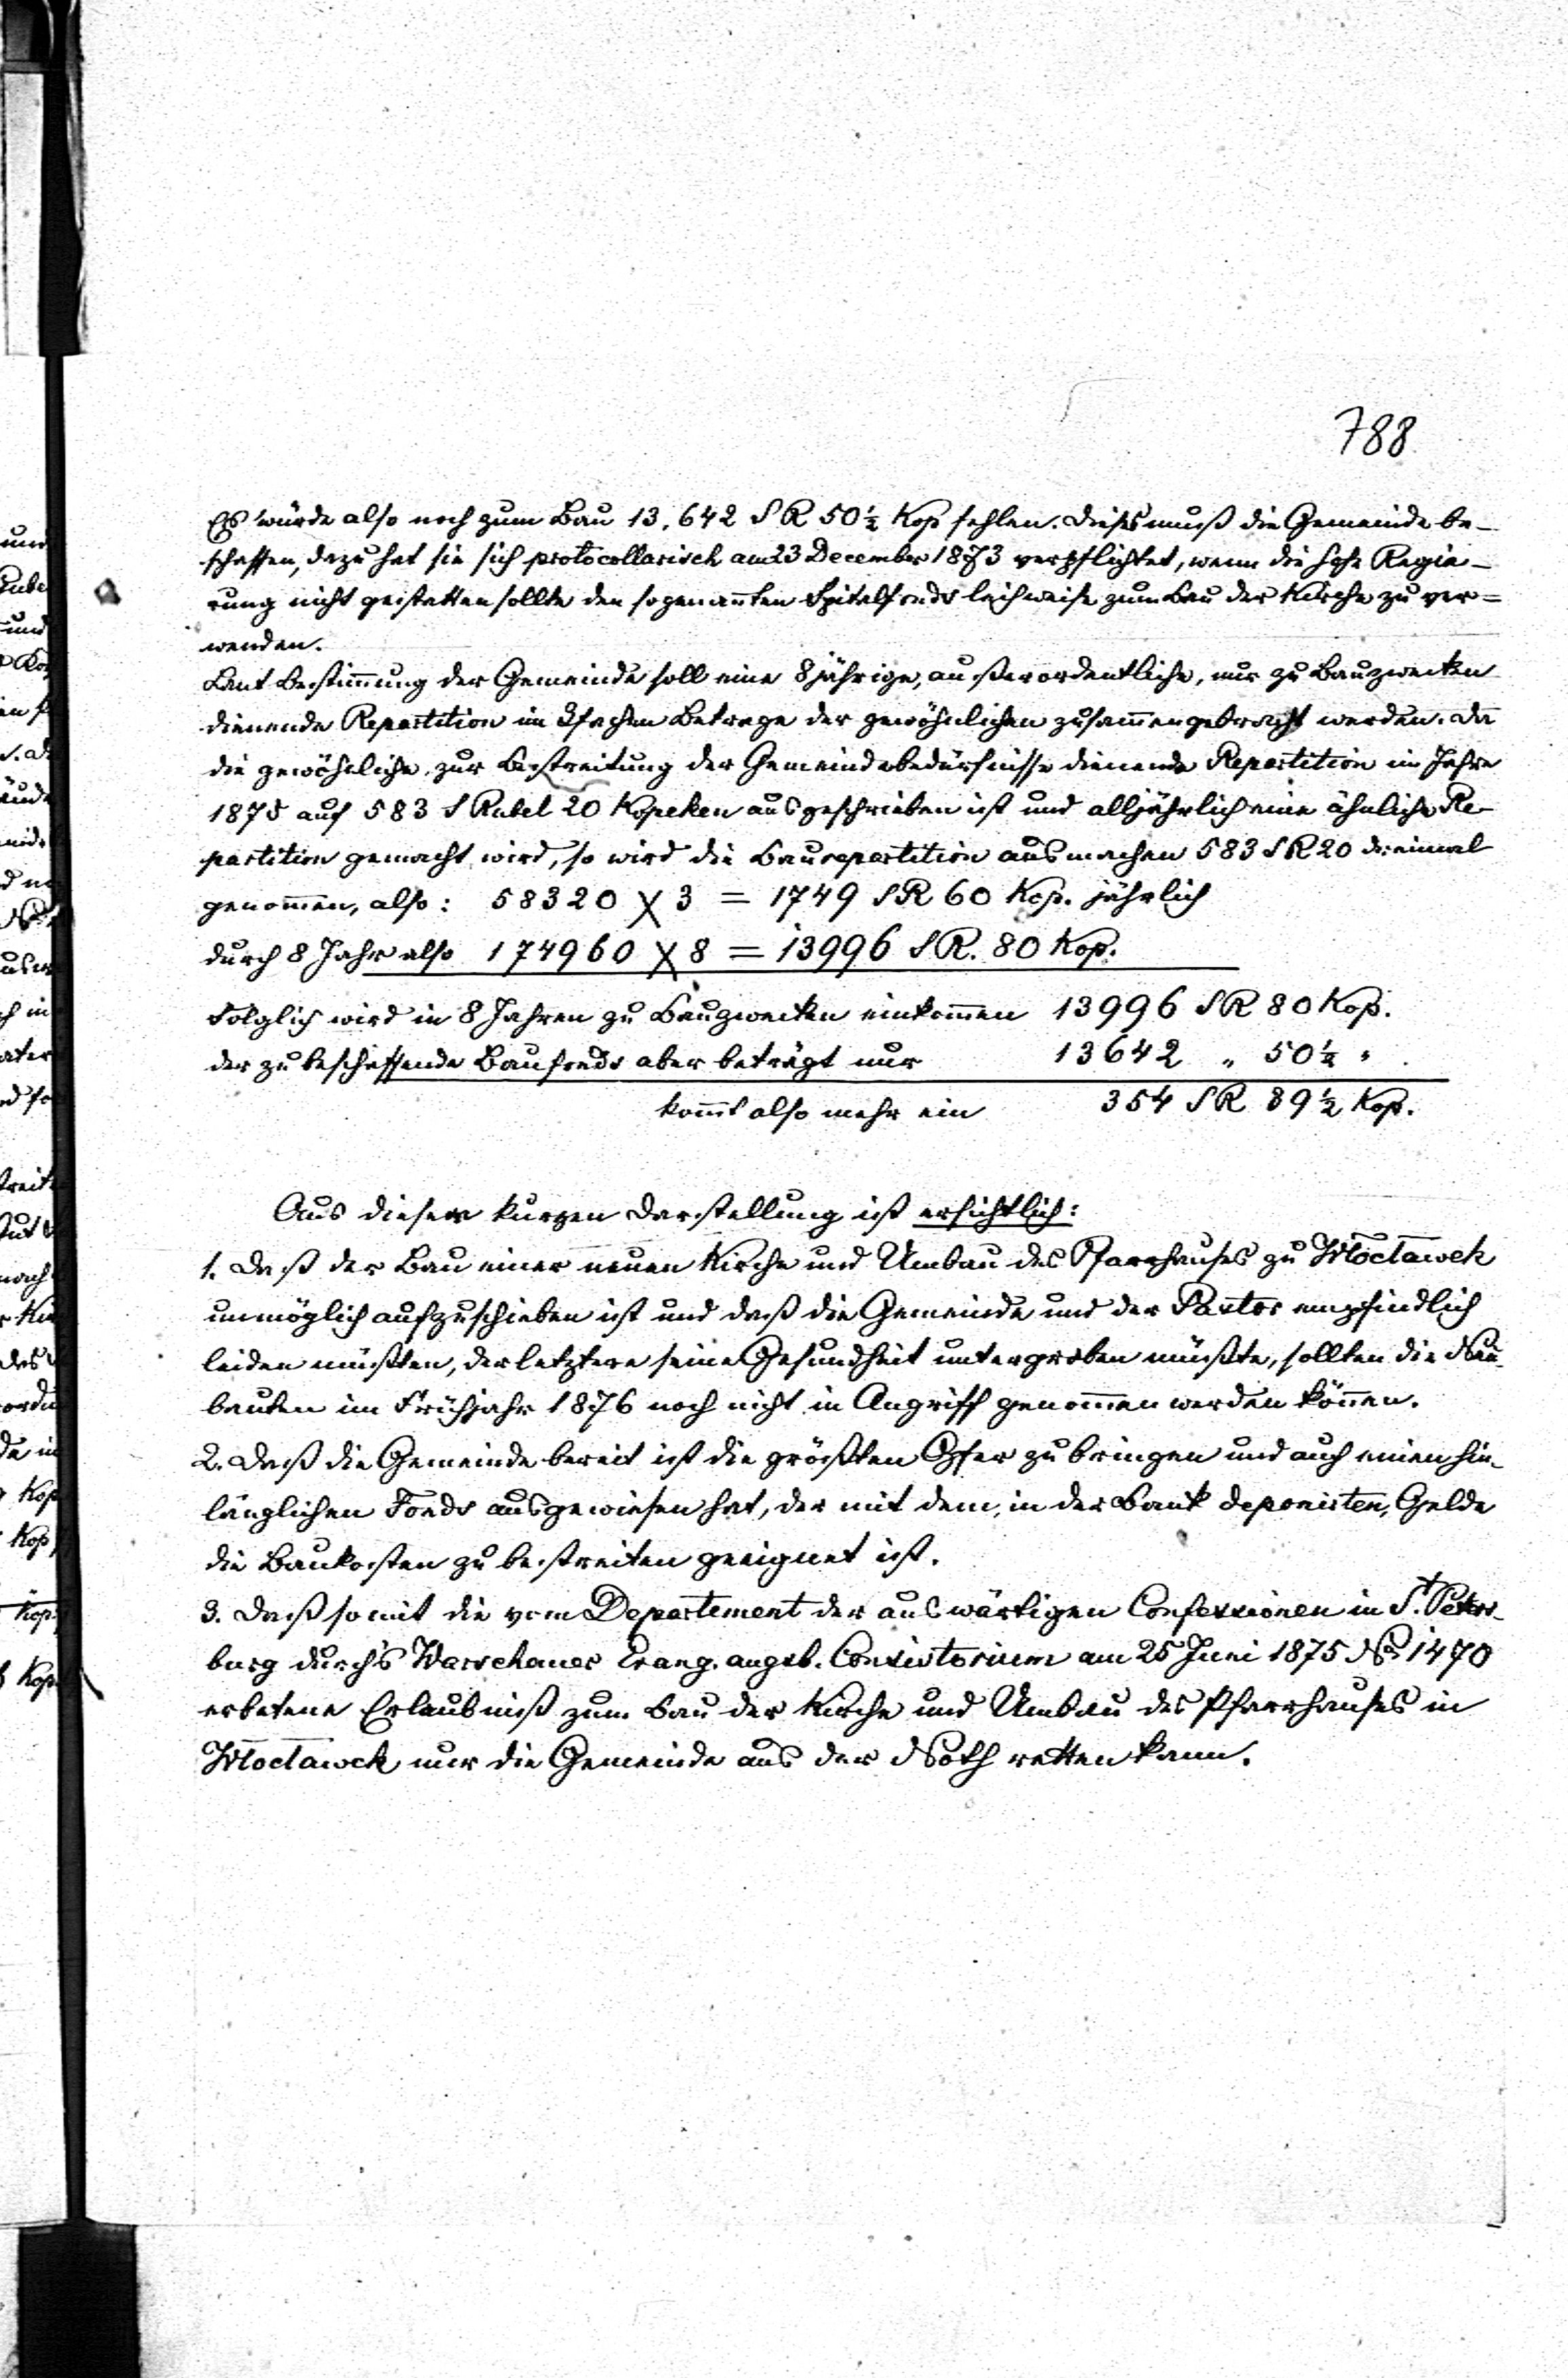 788
Es würde also noch zum Bau 13,642 S R 50½ Kop fehlen. Dieses muß die Gemeinde be-
schaffen, dazu hat sie sich protocollarisch am 23 December 1873 verpflichtet, wenn die hohe Regie-
rung nicht gestatten sollte den sogenannten Spitalfonds leihweise zum Bau der Kirche zu ver=
wenden.
Laut Bestimmung der Gemeinde soll eine 8jährige, außerordentliche, nur zu Bauzwecken
dienende Repartition im 3fachen Betrage der gewöhnlichen zusammengebracht werden. Da
die gewöhnliche, zur Bestreitung der Gemeindebedürfnisse dienende Repartition im Jahre
1875 auf 583 S Rubel 20 Kopeken ausgeschrieben ist und alljährlich eine ähnliche Re-
partition gemacht wird, so wird die Baurepartition ausmachen 583 S R 20 dreimal
genommen, also: 58320 X 3 = 1749 S R 60 Kop. jährlich
durch 8 Jahr also 174960 X 8 = 13996 S R. 80 Kop.
Folglich wird in 8 Jahren zu Bauzwecken einkommen 13996 S R 80 Kop.
der zu beschaffende Baufonds aber beträgt nur 13642 " 50½ "
kommt also mehr ein 354 S R 89½ Kop.
Aus dieser kurzen Darstellung ist ersichtlich:
1. Daß der Bau einer neuen Kirche und Umbau des Pfarrhauses zu Włocławek
unmöglich aufzuschieben ist und daß die Gemeinde und der Pastor empfindlich
leiden müßten, der letztere seine Gesundheit untergraben müßte, sollten die Neu-
bauten im Frühjahr 1876 noch nicht in Angriff genommen werden können.
2. Daß die Gemeinde bereit ist die größten Opfer zu bringen und auch einen hin-
länglichen Fonds ausgewiesen hat, der mit dem, in der Bank deponirten, Gelde
die Baukosten zu bestreiten geeignet ist.
3. Daß somit die vom Departement der auswärtigen Confessionen in St. Peters-
burg durch's Warschauer Evang. augsb. Consistorium am 25 Juni 1875 No 1470
erbetene Erlaubniß zum Bau der Kirche und Umbau des Pfarrhauses in
Włocławek nur die Gemeinde aus der Noth retten kann.